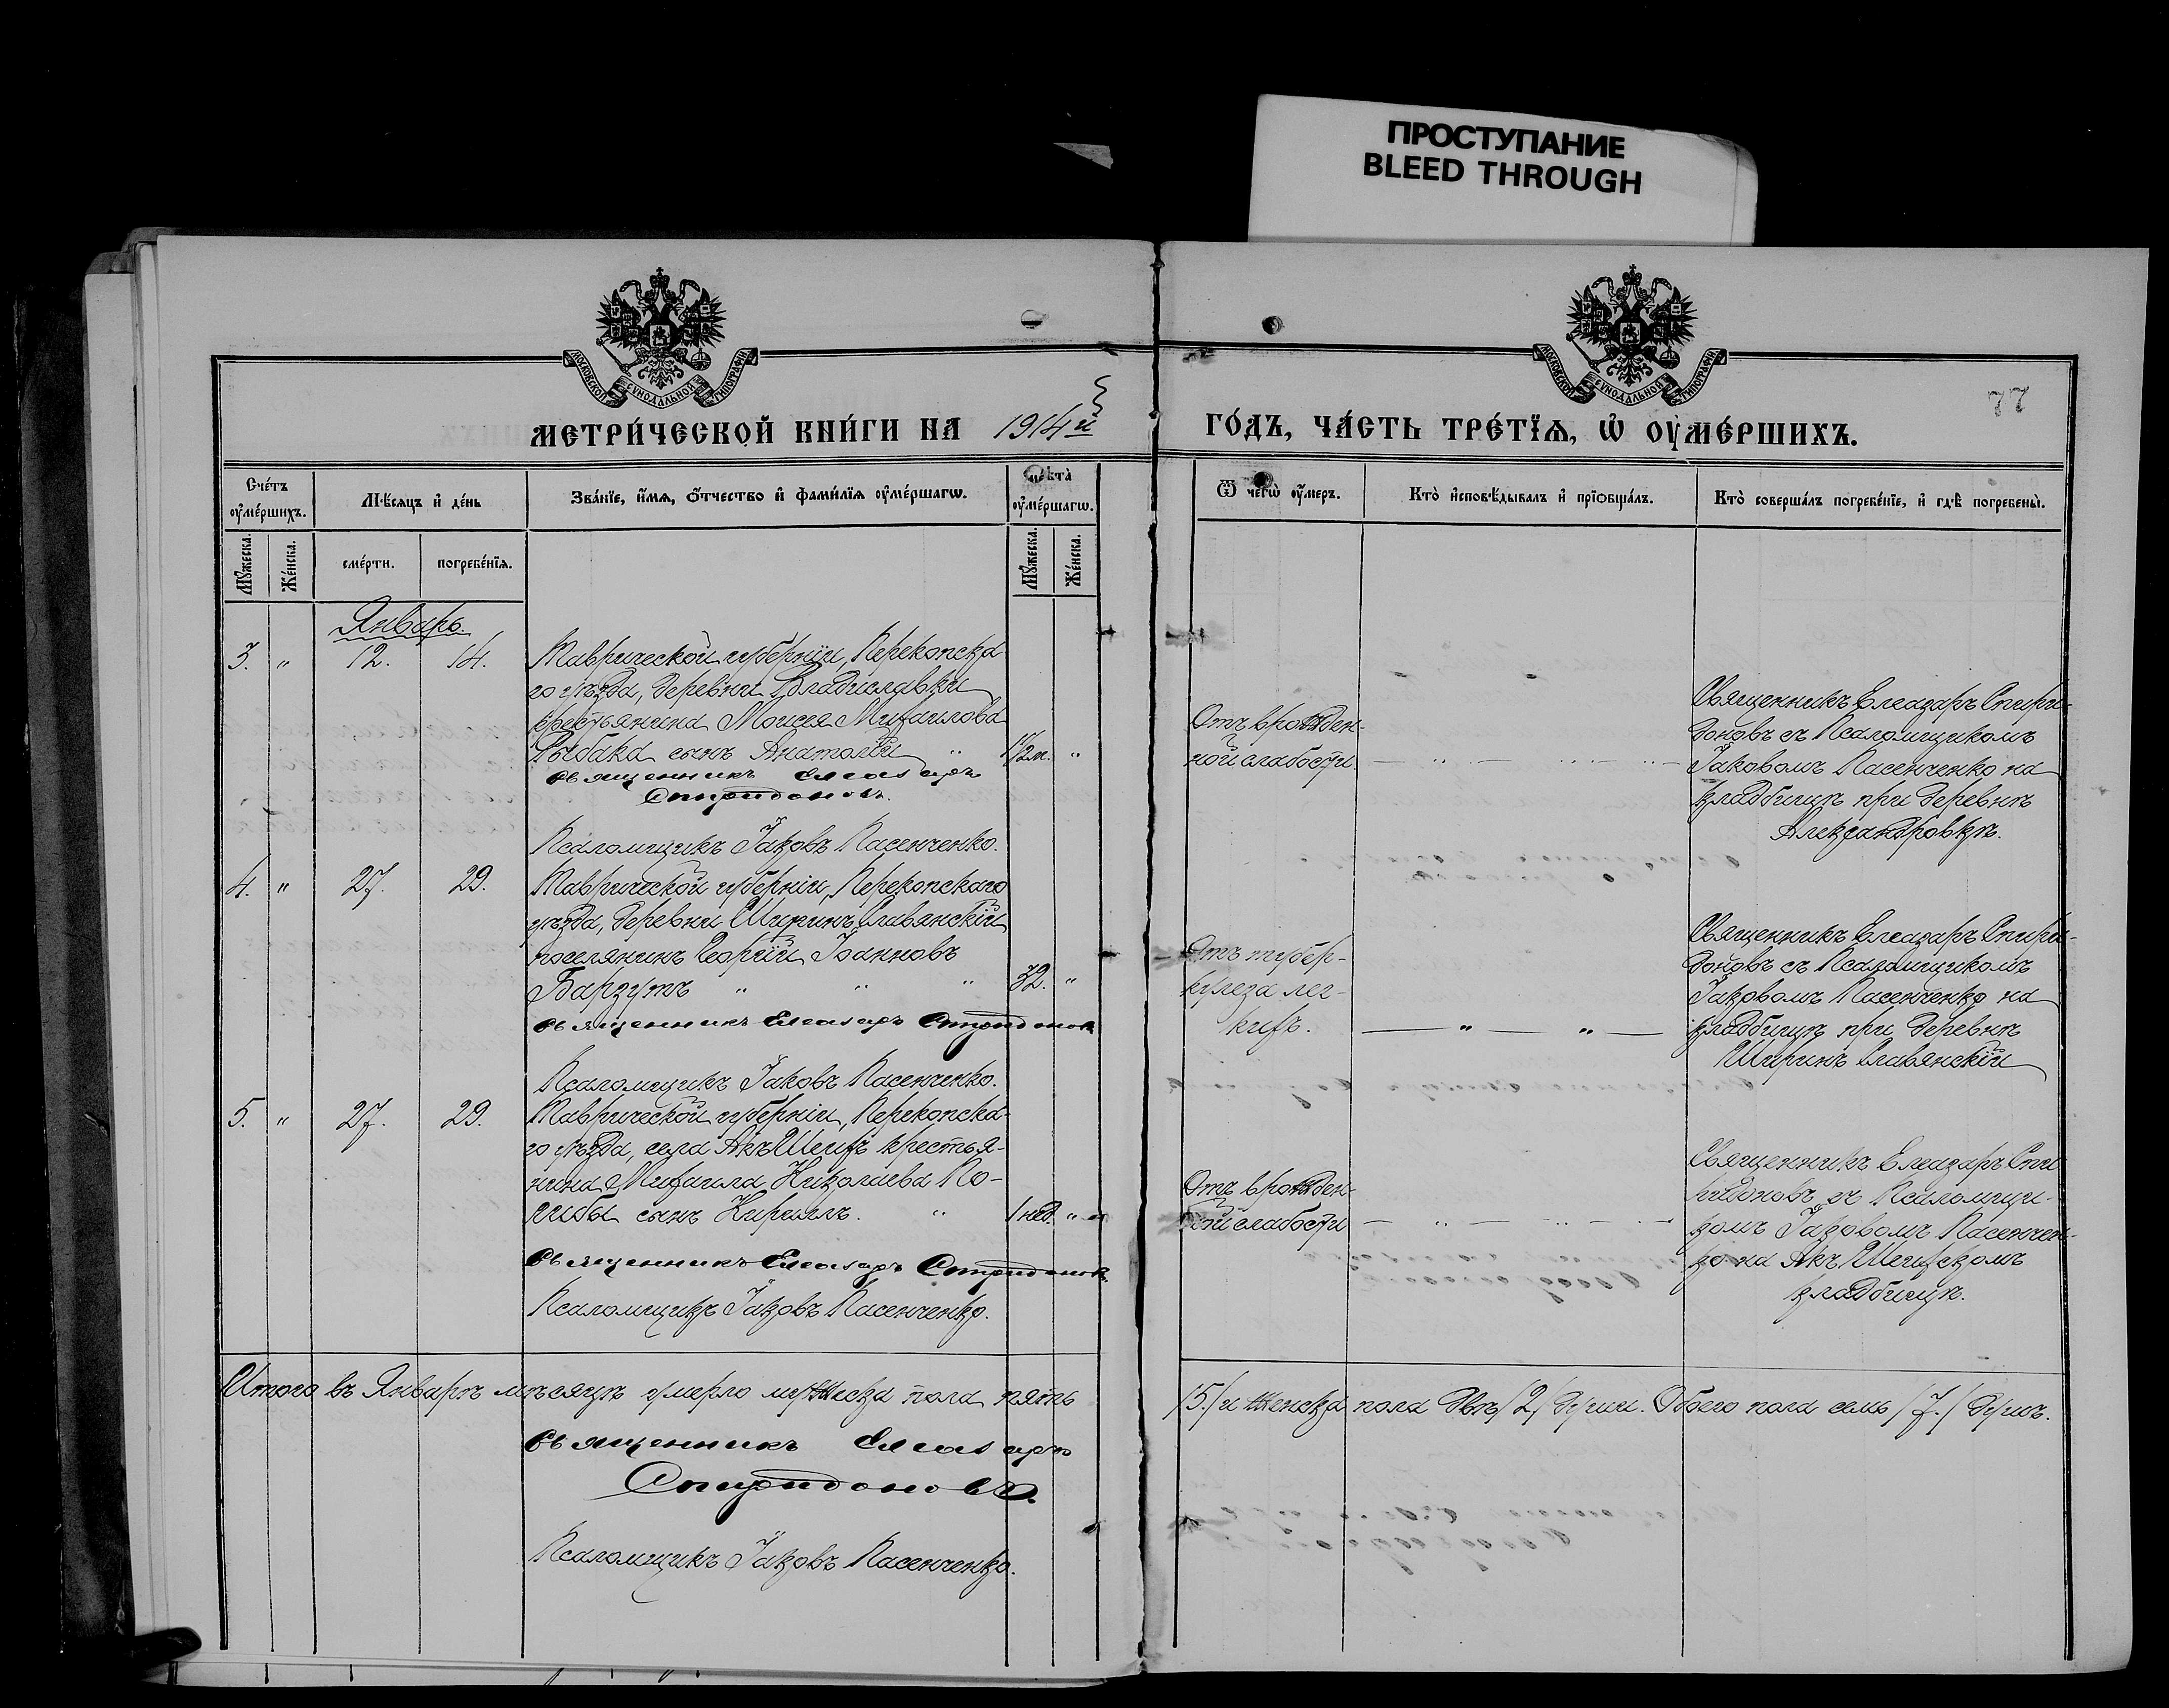 ПРОСТУПАНИЕ
BLEED THROUGH
МОСКОВСКОЙ СѴНОДАЛЬНОЙ ТИПОГРАФІИ
МОСКОВСКОЙ СѴНОДАЛЬНОЙ ТИПОГРАФІИ
77
МЕТРИ́ЧЕСКОЙ КНИ́ГИ НА 1914й
ГО́ДЪ, ЧА́СТЬ ТРЕ́ТЇѦ, Ѡ҆ ОУ҆МЕ́РШИХЪ.
Сче́тъ оу҆ме́ршихъ.
Мѣ́сяцъ и҆ де́нь
Зва́нїе, и҆́мя, ѻ҆́тчество и҆ фами́лїя оу҆ме́ршагѡ.
Лѣ́та̀ оу҆ме́ршагѡ.
Ѿ чегѡ̀ оу҆́меръ.
Кто̀ и҆сповѣ́дывалъ и҆ прїѡбща́лъ.
Кто̀ соверша́лъ погребе́нїе, и҆ гдѣ̀ погребены̀.
Мꙋ́жеска.
Же́нска.
сме́рти.
погребе́нїя.
Мꙋ́жеска.
Же́нска.
Январь.
3. " 12. 14.
Таврической губерніи, Перекопска
го уѣзда, деревни Владиславки
крестьянина Моисея Михаилова
Рыбака сынъ Анатолій " 1/2 м. "
Священникъ Елеазаръ
Спиридоновъ.
Псаломщикъ Іаковъ Пасенченко.
Отъ врожден-
ной слабости.
Священникъ Елеазаръ Спири-
доновъ съ Псаломщикомъ
Іаковомъ Пасенченко на
кладбищѣ при деревнѣ
Александровкѣ.
4. " 27. 29.
Таврической губерніи, Перекопскаго
уѣзда, деревни Ширинъ Славянскій
поселянинъ Георгій Іоанновъ
Барзутъ " " " 32. "
Священникъ Елеазаръ Спиридонов
Псаломщикъ Іаковъ Пасенченко.
Отъ тубер-
кулеза лег-
кихъ.
Священникъ Елеазаръ Спири-
доновъ съ Псаломщикомъ
Іаковомъ Пасенченко на
кладбищѣ при деревнѣ
Ширинъ Славянскій
5. " 27. 29.
Таврической губерніи, Перекопска-
го уѣзда, села Акъ Шеихъ крестья-
нина Михаила Николаева По-
сынъ Кириллъ. " 1 нед. "
Священникъ Елеазаръ Спиридонов
Псаломщикъ Іаковъ Пасенченко.
Отъ врожден-
ной слабости
Священникъ Елеазаръ Спи
ридоновъ съ Псаломщи-
комъ Іаковомъ Пасенчен-
ко на Акъ Шеихскомъ
кладбищѣ.
Итого въ Январѣ мѣсяцѣ умерло мужеска пола пять
/5./ и женска пола двѣ /2/ души. Обоего пола семь /7./ душъ.
Священникъ Елеазаръ
Спиридоновъ.
Псаломщикъ Іаковъ Пасенченко.